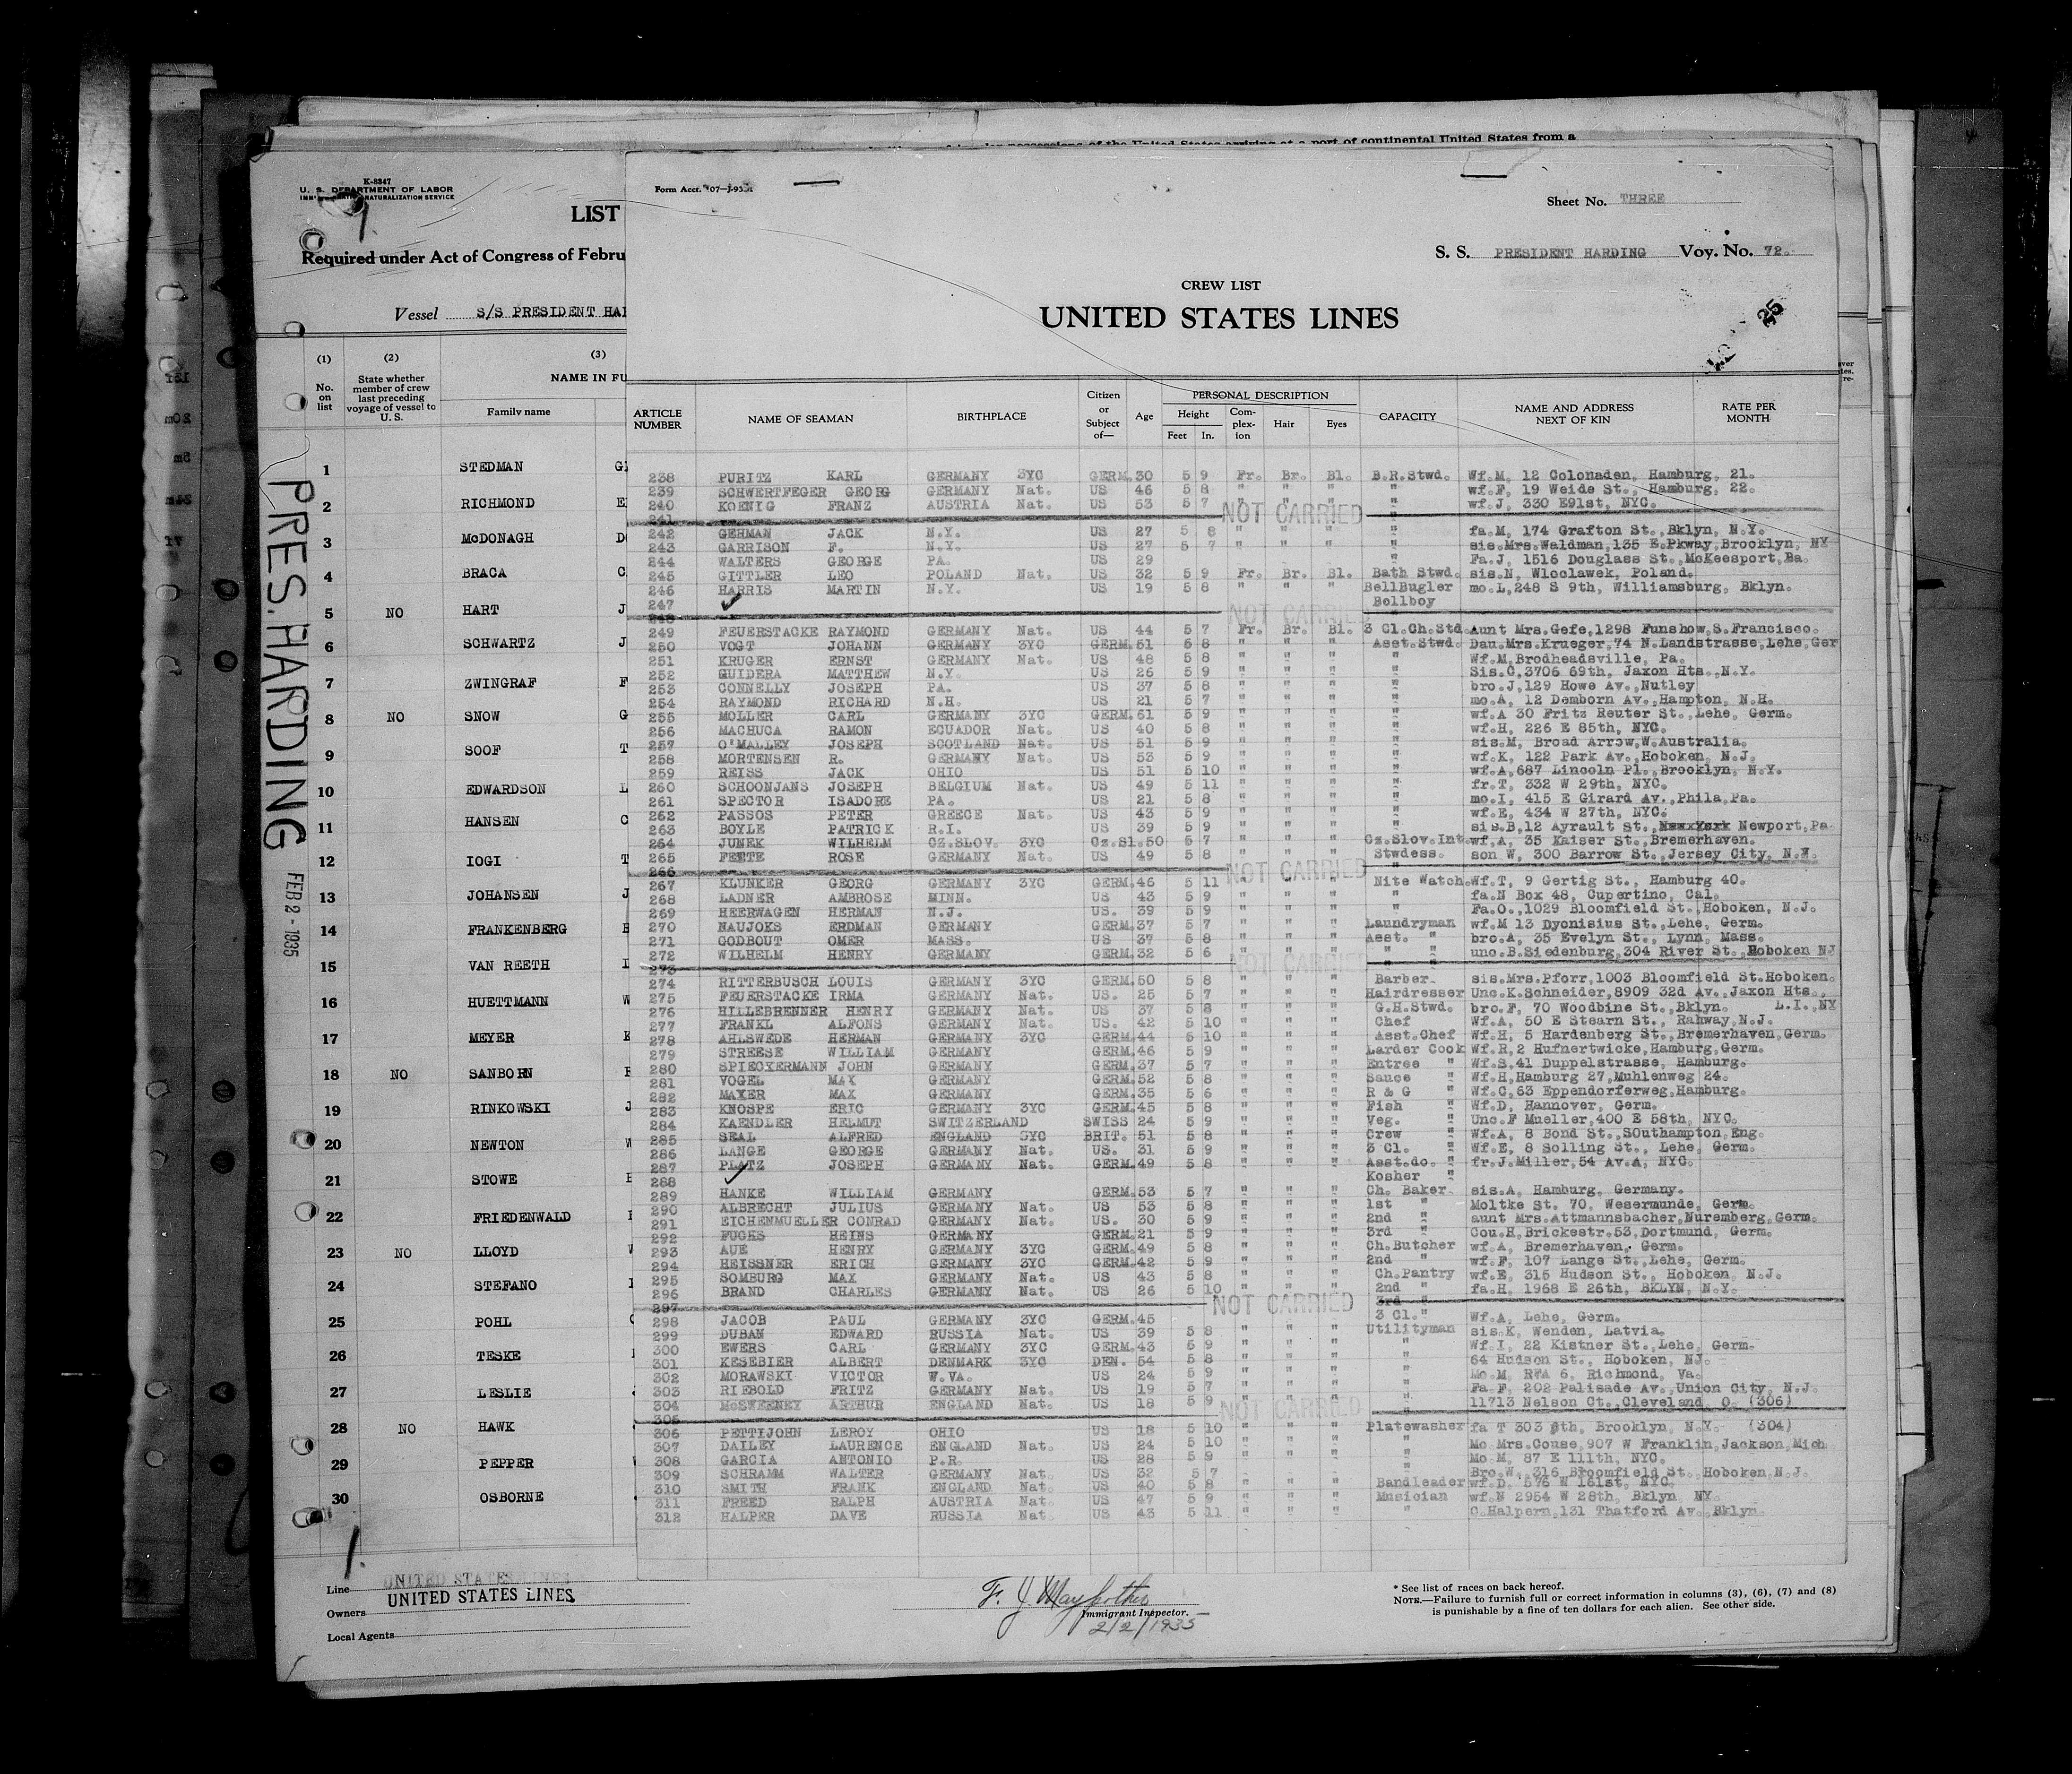 K-8347
U. S. DEPARTMENT OF LABOR
NATURALIZATION SERVICE
LIST
Required under Act of Congress of Febru
Vessel S/S PRESIDENT HAR
(1) (2) (3)
No. on list
State whether member of crew last preceding voyage of vessel to U. S.
NAME IN FU
Family name
1 STEDMAN
2 RICHMOND
3 McDONAGH
4 BRACA
5 NO HART
6 SCHWARTZ
7 ZWINGRAF
8 NO SNOW
9 SOOF
10 EDWARDSON
11 HANSEN
12 IOGI
13 JOHANSEN
14 FRANKENBERG
15 VAN REETH
16 HUETTMANN
17 MEYER
18 NO SANBORN
19 RINKOWSKI
20 NEWTON
21 STOWE
22 FRIEDENWALD
23 NO LLOYD
24 STEFANO
25 POHL
26 TESKE
27 LESLIE
28 NO HAWK
29 PEPPER
30 OSBORNE
PRES. HARDING
FEB 2 - 1935
Line UNITED STATES LINES
Owners UNITED STATES LINES
Local Agents
of the United States arriving at a port of continental United States from a
Form Acct.
Sheet No. THREE
S. S. PRESIDENT HARDING Voy. No. 72.
CREW LIST
UNITED STATES LINES
25
ARTICLE NUMBER
NAME OF SEAMAN
BIRTHPLACE
Citizen or Subject of—
Age
PERSONAL DESCRIPTION
Height
Feet In.
Com-plex-ion
Hair
Eyes
CAPACITY
NAME AND ADDRESS NEXT OF KIN
RATE PER MONTH
238 PURITZ KARL GERMANY 3YC GERM. 30 5 9 Fr. Br. Bl. B.R.Stwd. Wf.M, 12 Colonaden, Hamburg, 21.
239 SCHWERTFEGER GEORG GERMANY Nat. US 46 5 8 " " " " wf.F, 19 Weide St., Hamburg, 22.
240 KOENIG FRANZ AUSTRIA Nat. US 53 5 7 " " " " wf.J, 330 E91st, NYC.
241 NOT CARRIED
242 GEHMAN JACK N.Y. US 27 5 8 " " " " fa.M, 174 Grafton St., Bklyn, N.Y.
243 GARRISON F. N.Y. US 27 5 7 " " " " sis.Mrs.Waldman,135 E.Pkway,Brooklyn, NY
244 WALTERS GEORGE PA. US 29 " Fa.J, 1516 Douglass St., McKeesport,Pa.
245 GITTLER LEO POLAND Nat. US 32 5 9 Fr. Br. Bl. Bath Stwd. sis.N, Wloclawek, Poland.
246 HARRIS MARTIN N.Y. US 19 5 8 " " " BellBugler mo.L,248 S 9th, Williamsburg, Bklyn.
247 Bellboy
248 NOT CARRIED
249 FEUERSTACKE RAYMOND GERMANY Nat. US 44 5 7 Fr. Br. Bl. 3 Cl.Ch.Std. Aunt Mrs.Gefe,1298 Funshow,S.Francisco.
250 VOGT JOHANN GERMANY 3YC GERM. 51 5 8 " " " Asst.Stwd. Dau.Mrs.Krueger,74 N.Landstrasse,Lehe,Ger
251 KRUGER ERNST GERMANY Nat. US 48 5 8 " " " " Wf.M,Brodheadsville, Pa.
252 GUIDERA MATTHEW N.Y. US 26 5 9 " " " " Sis.C,3706 69th, Jaxon Hts., N.Y.
253 CONNELLY JOSEPH PA. US 37 5 8 " " " " bro.J,129 Howe Av., Nutley
254 RAYMOND RICHARD N.H. US 21 5 7 " " " " mo.A, 12 Demborn Av., Hampton, N.H.
255 MOLLER CARL GERMANY 3YC GERM. 61 5 9 " " " " wf.A 30 Fritz Reuter St., Lehe, Germ.
256 MACHUCA RAMON ECUADOR Nat. US 40 5 8 " " " " wf.H, 226 E 85th, NYC.
257 O'MALLEY JOSEPH SCOTLAND Nat. US 51 5 9 " " " " sis.M, Broad Arrow,W.Australia.
258 MORTENSEN R. GERMANY Nat. US 53 5 9 " " " " wf.K, 122 Park Av.,Hoboken, N.J.
259 REISS JACK OHIO US 51 5 10 " " " " wf.A,687 Lincoln Pl.,Brooklyn, N.Y.
260 SCHOONJANS JOSEPH BELGIUM Nat. US 49 5 11 " " " " fr.T, 332 W 29th, NYC.
261 SPECTOR ISADORE PA. US 21 5 8 " " " " mo.I, 415 E Girard Av.,Phila,Pa.
262 PASSOS PETER GREECE Nat. US 43 5 9 " " " " wf.E, 434 W 27th, NYC.
263 BOYLE PATRICK R.I. US 39 5 9 " " " " sis.B,12 Ayrault St., New York Newport,Pa
264 JUNEK WILHELM CZ.SLOV. 3YC Cz.Sl. 50 5 7 " " " Cz.Slov.Int. wf.A, 35 Kaiser St., Bremerhaven.
265 FETTE ROSE GERMANY Nat. US 49 5 8 " " " Stwdess. son W, 300 Barrow St., Jersey City, N.Y.
266 NOT CARRIED "
267 KLUNKER GEORG GERMANY 3YC GERM. 46 5 11 " " " Nite Watch. Wf.T, 9 Gertig St., Hamburg 40.
268 LADNER AMBROSE MINN. US 43 5 9 " " " " fa.N Box 48, Cupertino, Cal.
269 HEERWAGEN HERMAN N.J. US. 39 5 9 " " " " Fa.O.,1029 Bloomfield St.,Hoboken, N.J.
270 NAUJOKS ERDMAN GERMANY GERM. 37 5 7 " " " Laundryman wf.M 13 Dyonisius St., Lehe, Germ.
271 GODBOUT OMER MASS. US 37 5 8 " " " Asst. " bro.A, 35 Evelyn St., Lynn, Mass.
272 WILHELM HENRY GERMANY GERM. 32 5 6 " " " " " unc.B.Siedenburg,304 River St.,Hoboken NJ
273 NOT CARRIED " "
274 RITTERBUSCH LOUIS GERMANY 3YC GERM. 50 5 8 " " " Barber. sis.Mrs.Pforr,1003 Bloomfield St.Hoboken.
275 FEUERSTACKE IRMA GERMANY Nat. US. 25 5 7 " " " Hairdresser Unc.K.Schneider,8909 32d Av.,Jaxon Hts., L.I.,NY
276 HILLEBRENNER HENRY GERMANY Nat. US 37 5 8 " " " G.H.Stwd. bro.F, 70 Woodbine St., Bklyn.
277 FRANKL ALFONS GERMANY Nat. US. 42 5 10 " " " Chef Wf.A, 50 E Stearn St., Rahway,N.J.
278 AHLSWEDE HERMAN GERMANY 3YC GERM. 44 5 10 " " " Asst.Chef Wf.H, 5 Hardenberg St.,Bremerhaven,Germ.
279 STREESE WILLIAM GERMANY GERM. 46 5 9 " " " Larder Cook Wf.R,2 Hufnertwicke,Hamburg,Germ.
280 SPIECKERMANN JOHN GERMANY GERM. 37 5 7 " " " Entree " Wf.S,41 Duppelstrasse, Hamburg.
281 VOGEL MAX GERMANY GERM. 52 5 8 " " " Sauce " Wf.H,Hamburg 27,Muhlenweg 24.
282 MAYER MAX GERMANY GERM. 35 5 6 " " " R & G " Wf.C,63 Eppendorferweg,Hamburg.
283 KNOSPE ERIC GERMANY 3YC GERM. 45 5 8 " " " Fish " Wf.D, Hannover, Germ.
284 KAENDLER HELMUT SWITZERLAND SWISS 24 5 9 " " " Veg. " Unc.F Mueller,400 E 58th, NYC.
285 SEAL ALFRED ENGLAND 3YC BRIT. 51 5 8 " " " Crew " Wf.A, 8 Bond St.,SOuthampton,Eng.
286 LANGE GEORGE GERMANY Nat. US. 31 5 9 " " " 3 Cl. " Wf.E, 8 Solling St., Lehe, Germ.
287 PLATZ JOSEPH GERMANY Nat. GERM. 49 5 8 " " " Asst.do. " fr.J.Miller,54 Av.A, NYC.
288 Kosher "
289 HANKE WILLIAM GERMANY GERM. 53 5 7 " " " Ch. Baker. sis.A, Hamburg, Germany.
290 ALBRECHT JULIUS GERMANY Nat. US 53 5 8 " " " 1st " Moltke St. 70, Wesermunde, Germ.
291 EICHENMUELLER CONRAD GERMANY Nat. US. 30 5 9 " " " 2nd " aunt Mrs.Attmannsbacher,Nuremberg,Germ.
292 FUCHS HEINS GERMANY GERM. 21 5 9 " " " 3rd " Cou.H,Brickestr.53,Dortmund, Germ.
293 AUE HENRY GERMANY 3YC GERM. 49 5 8 " " " Ch.Butcher wf.A, Bremerhaven, Germ.
294 HEISSNER ERICH GERMANY 3YC GERM. 42 5 9 " " " 2nd " wf.F, 107 Lange St., Lehe, Germ.
295 SOMBURG MAX GERMANY Nat. US 43 5 8 " " " Ch.Pantry wf.E, 315 Hudson St., Hoboken, N.J.
296 BRAND CHARLES GERMANY Nat. US 26 5 10 " " " 2nd " fa.H, 1968 E 26th, BKLYN, N.Y.
297 NOT CARRIED 3rd "
298 JACOB PAUL GERMANY 3YC GERM. 45 " " " 3 Cl." Wf.A, Lehe, Germ.
299 DUBAN EDWARD RUSSIA Nat. US 39 5 8 " " " Utilityman sis.K, Wenden, Latvia.
300 EWERS CARL GERMANY 3YC GERM. 43 5 9 " " " " Wf.I, 22 Kistner St.,Lehe, Germ.
301 KESEBIER ALBERT DENMARK 3YC DEN. 54 5 8 " " " " 64 Hudson St., Hoboken, NJ.
302 MORAWSKI VICTOR W.VA. US 24 5 9 " " " " Mo.M, 6, Richmond, Va.
303 RIEBOLD FRITZ GERMANY Nat. US 19 5 7 " " " " Fa.F, 202 Palisade Av.,Union City, N.J.
304 McSWEENEY ARTHUR ENGLAND Nat. US 18 5 9 " " " " 11713 Nelson Ct.,Cleveland O. (306)
305 NOT CARRIED
306 PETTIJOHN LEROY OHIO US 18 5 10 " " " Platewasher fa T 303 8th, Brooklyn, N.Y. (304)
307 DAILEY LAURENCE ENGLAND Nat. US 24 5 10 " " " " Mo Mrs.Couse,907 W Franklin,Jackson,Mich
308 GARCIA ANTONIO P.R. US 28 5 9 " " " " Mo M, 87 E 111th, NYC.
309 SCHRAMM WALTER GERMANY Nat. US 32 5 7 " " " " Bro.W. 316 Bloomfield St. Hoboken,N.J.
310 SMITH FRANK ENGLAND Nat. US 40 5 8 " " " Bandleader wf.D. 576 W 161st, NYC.
311 FREED RALPH AUSTRIA Nat. US 47 5 9 " " " Musician wf.N 2954 W 28th, Bklyn, NY.
312 HALPER DAVE RUSSIA Nat. US 43 5 11 " " " " C.Halpern,131 Thatford Av.,Bklyn.
Immigrant Inspector.
2/2/1935
* See list of races on back hereof.
NOTE.—Failure to furnish full or correct information in columns (3), (6), (7) and (8)
is punishable by a fine of ten dollars for each alien. See other side.